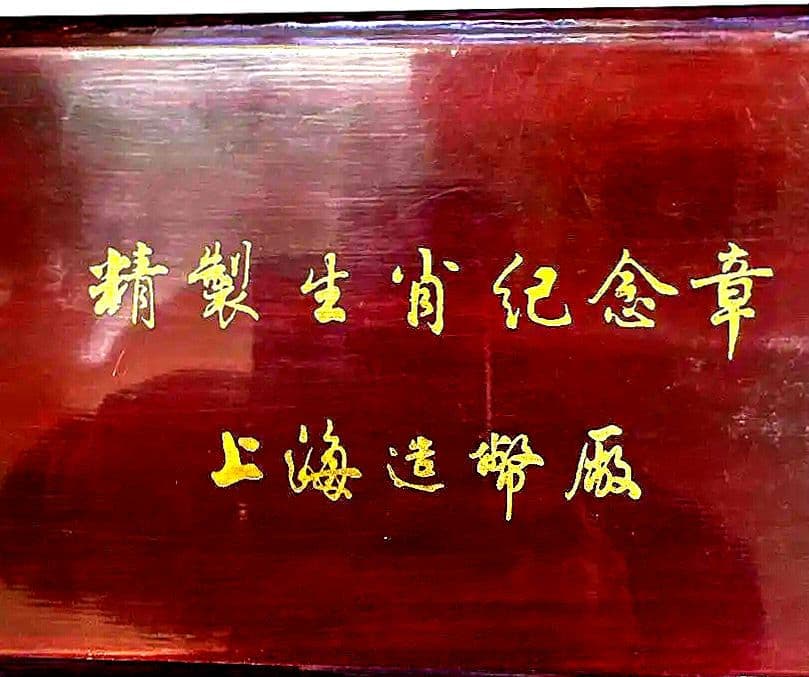 精製生肖纪念章
上海造幣厰